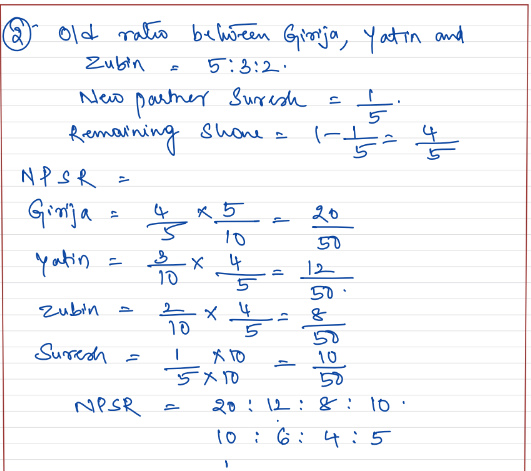 ② Old ratio between Girija, Yatin and
Zubin = 5:3:2.
New partner Suresh = 1/5.
Remaining Share = 1 - 1/5 = 4/5
NPSR =
Girija = 4/5 × 5/10 = 20/50
Yatin = 3/10 × 4/5 = 12/50.
Zubin = 2/10 × 4/5 = 8/50
Suresh = 1/5 ×10/×10 = 10/50
NPSR = 20 : 12 : 8 : 10.
10 : 6 : 4 : 5